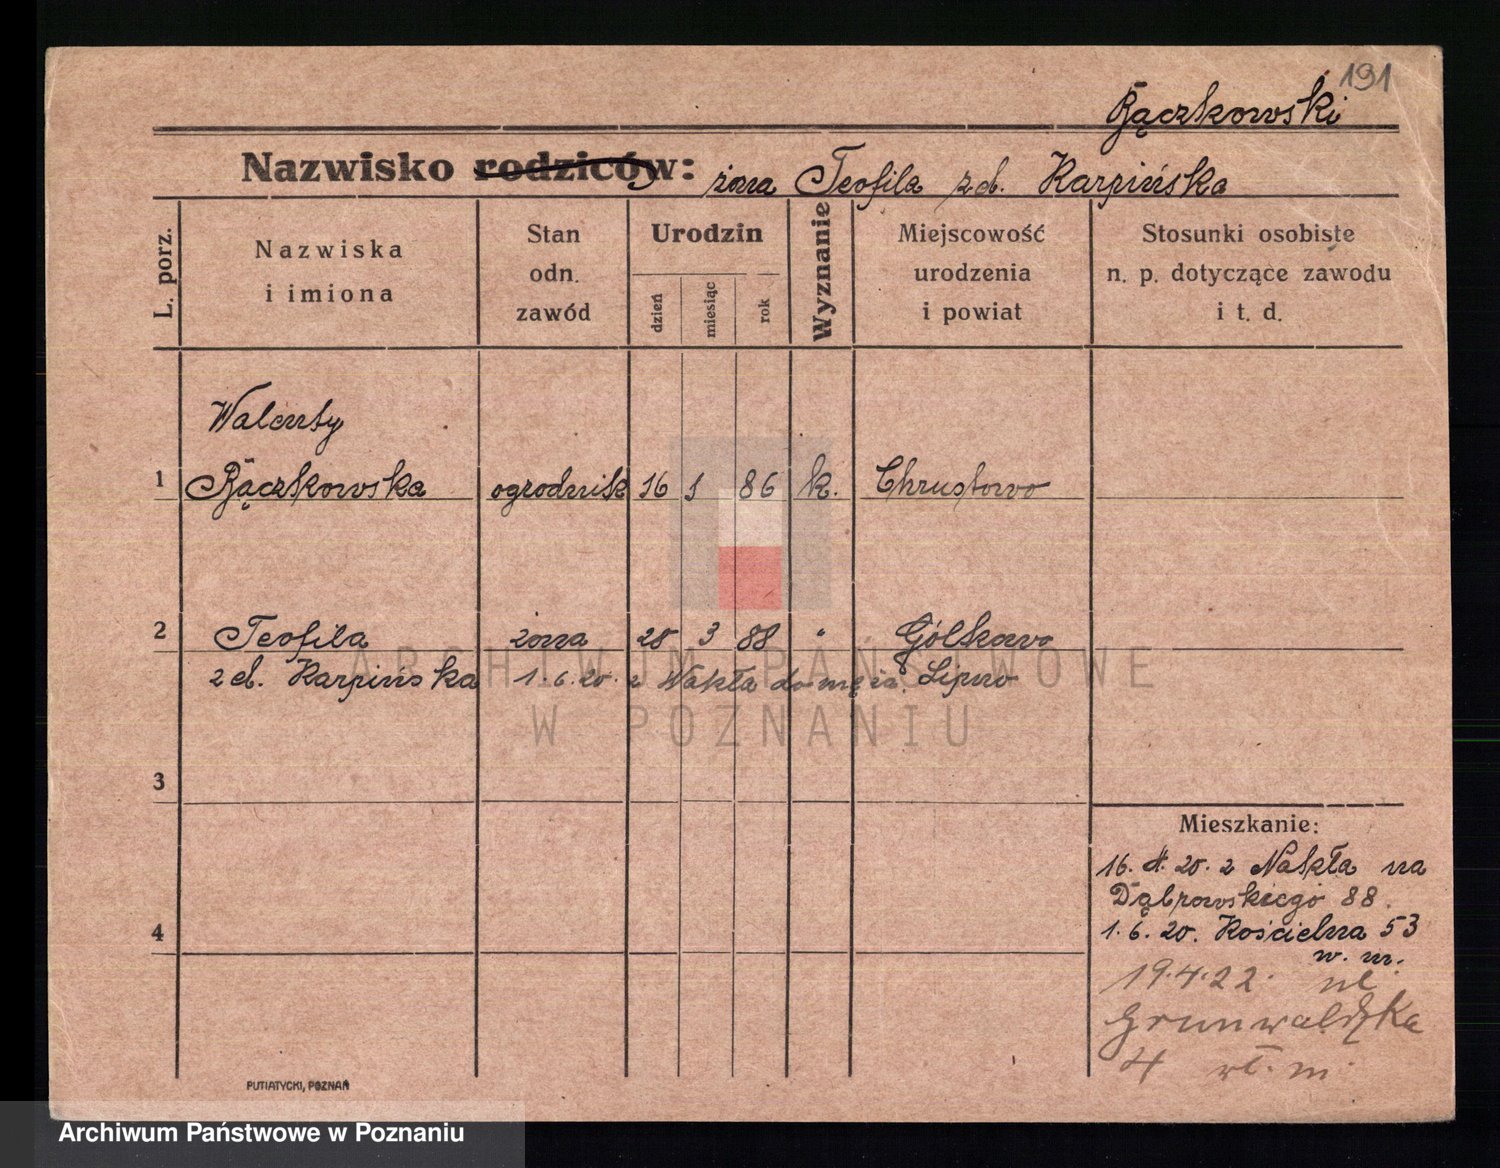 191
Bączkowski
Nazwisko rodziców: żona Teofila z d. Karpińska
L. porz.
Nazwiska i imiona
Stan odn. zawód
Urodzin
dzień
miesiąc
rok
Wyznanie
Miejscowość urodzenia i powiat
Stosunki osobiste n. p. dotyczące zawodu i t. d.
Walenty
1 Bączkowska ogrodnik 16 1 86 k. Chrustowo
2 Teofila żona 28 3 88 " Gólkowo
z d. Karpińska 1.6.20. z Nakła do męża. Lipno
3
Mieszkanie:
16.4.20. z Nakła na
Dąbrowskiego 88.
1.6.20. Kościelna 53
w. m.
19.4.22. ul
Grunwaldzka
4 wł. m.
4
PUTIATYCKI, POZNAŃ
ARCHIWUM PAŃSTWOWE
W POZNANIU
Archiwum Państwowe w Poznaniu